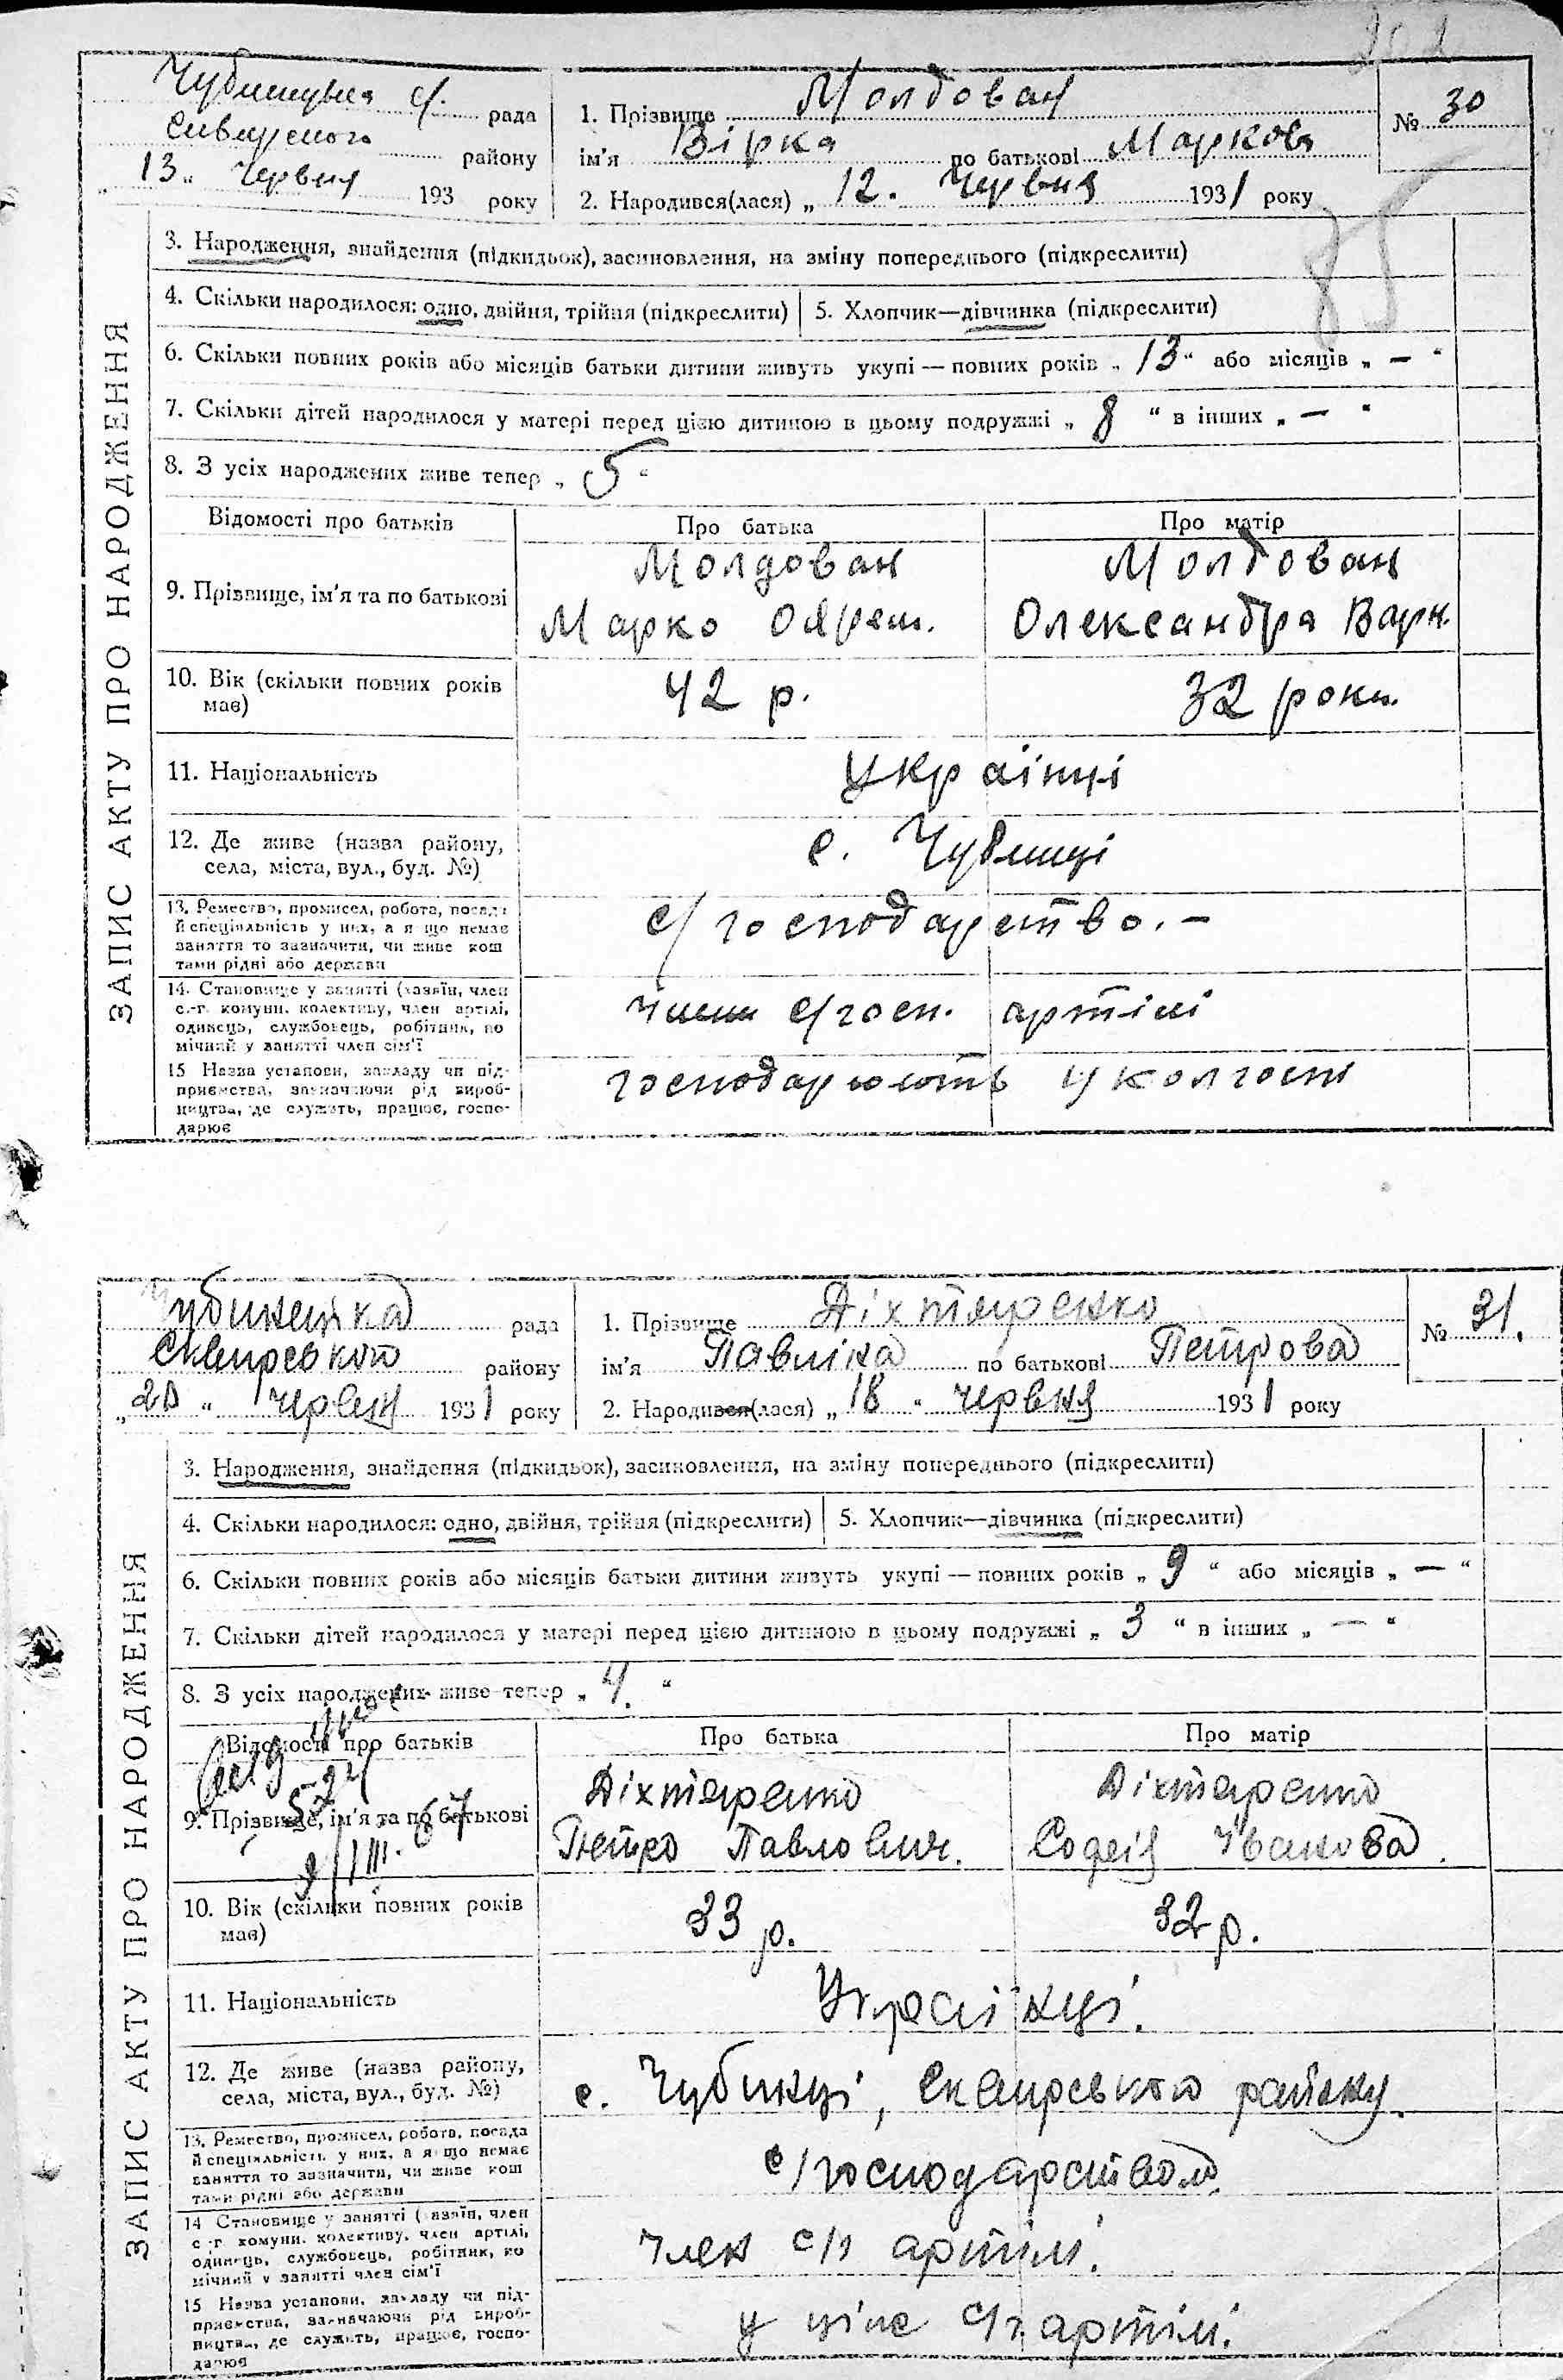 201
Чубинецка с/. рада
Сквирського району
„13“ Червня 193 року
1. Прізвище Молдован
ім'я Вірка по батькові Маркова
2. Народився(лася) „12. Червня 1931 року
№ 30
ЗАПИС АКТУ ПРО НАРОДЖЕННЯ
3. Народження, знайдення (підкидьок), засиновлення, на зміну попереднього (підкреслити)
4. Скільки народилося: одно, двійня, трійня (підкреслити) 5. Хлопчик—дівчинка (підкреслити)
6. Скільки повних років або місяців батьки дитини живуть укупі — повних років „13“ або місяців „—“
7. Скільки дітей народилося у матері перед цією дитиною в цьому подружжі „8“ в інших „—“
8. З усіх народжених живе тепер „5“
Відомості про батьків Про батька Про матір
9. Прізвище, ім'я та по батькові
Молдован
Марко
Молдован
Олександра Варк.
10. Вік (скільки повних років має) 42 р. 32 роки.
11. Національність українці
12. Де живе (назва району,
села, міста, вул., буд. №)
с. Чубинці
13. Ремество, промисел, робота, посада
й спеціяльність у них, а якщо немає
заняття то зазначити, чи живе кош
тами рідні або держави
с/господарство. –
14. Становище у занятті (хазяїн, член
с.-г. комуни, колективу, член артілі,
одинець, службовець, робітник, по
мічний у занятті член сім'ї
члени с/госп. артілі
15 Назва установи, закладу чи під-
приємства, зазначаючи рід вироб-
ництва, де служить, працює, госпо-
дарює
господарюють у колгоспі
Чубинецкая рада
Сквирського району
„20“ червня 1931 року
1. Прізвище Діхтяренко
ім'я Павліна по батькові Петрова
2. Народився(лася) „18“ червня 1931 року
№ 31.
ЗАПИС АКТУ ПРО НАРОДЖЕННЯ
3. Народження, знайдення (підкидьок), засиновлення, на зміну попереднього (підкреслити)
4. Скільки народилося: одно, двійня, трійня (підкреслити) 5. Хлопчик—дівчинка (підкреслити)
6. Скільки повних років або місяців батьки дитини живуть укупі — повних років „9“ або місяців „—“
7. Скільки дітей народилося у матері перед цією дитиною в цьому подружжі „3“ в інших „—“
8. З усіх народжених живе тепер „4.“
Відомості про батьків Про батька Про матір
9. Прізвище, ім'я та по батькові
Діхтяренко
Петро Павлович.
Діхтяренко
Софія Іванова.
10. Вік (скільки повних років має) 33 р. 32 р.
11. Національність Українці.
12. Де живе (назва району,
села, міста, вул., буд. №)
с. Чубинці, Сквирського району.
13. Ремество, промисел, робота, посада
й спеціяльність у них, а якщо немає
заняття то зазначити, чи живе кош
тами рідні або держави
с/господарством.
14 Становище у занятті (хазяїн, член
с.-г. комуни, колективу, член артілі,
одинець, службовець, робітник, по
мічний у занятті член сім'ї
член с/г артілі.
15 Назва установи, закладу чи під-
приємства, зазначаючи рід вироб-
ництва, де служить, працює, госпо-
дарює
у ціпе с/г. артілі.